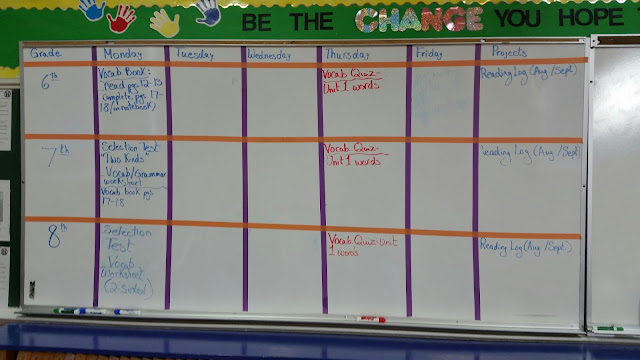 BE THE CHANGE YOU HOPE
Grade Monday Tuesday Wednesday Thursday Friday Projects
6th
Vocab Book:
read pgs 12-13
Complete pgs 17-
18 (in notebook)
Vocab Quiz-
Unit 1 words
Reading Log (Aug/Sept)
7th
Selection Test
"Two Kinds"
Vocab/Grammar
worksheet
Vocab book pgs
17-18
Vocab Quiz-
Unit 1 words
Reading Log (Aug/Sept
8th
Selection
Test
Vocab
Worksheet
(2-sided)
Vocab Quiz-Unit
1 words
Reading Log (Aug/Sept)